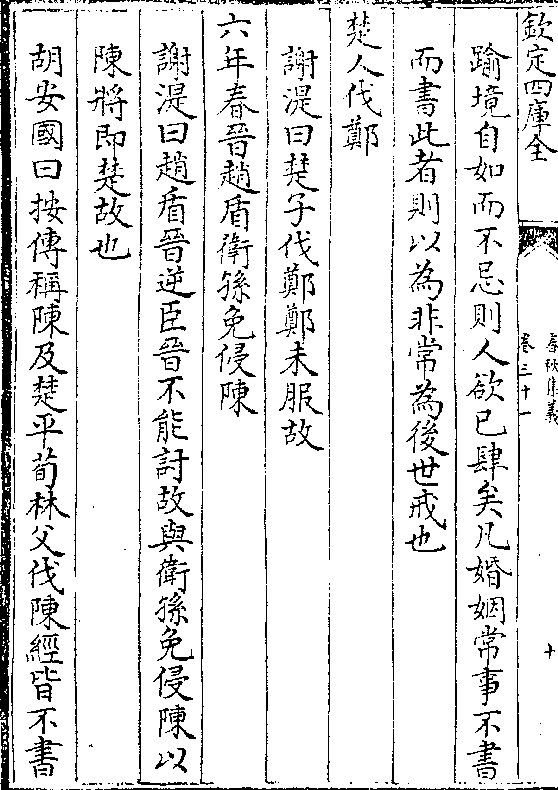 欽定四庫全
春秋集義
卷三十一
十
踰境自如而不忌則人欲已肆矣凡婚姻常事不書
而書此者則以為非常為後世戒也
楚人伐鄭
謝湜曰楚子伐鄭鄭未服故
六年春晉趙盾衛孫免侵陳
謝湜曰趙盾晉逆臣晉不能討故與衛孫免侵陳以
陳將即楚故也
胡安國曰按傳稱陳及楚平荀林父伐陳經皆不書